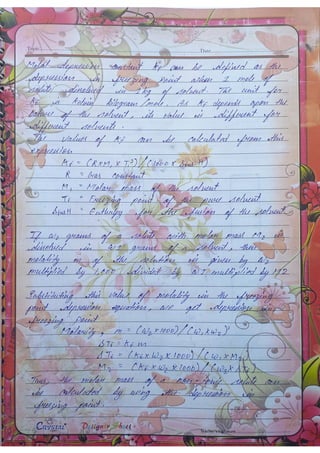 Date
Molal depression constant Kf can be defined as the
depression in freezing point when 1 mole of
solute dissolved in 1 kg of solvent. The unit for
Kf is Kelvin kilogram/mole. As Kf depends upon the
nature of the solvent, its value is different for
different solvents.
The values of Kf can be calculated from this
expression
Kf = (R×M1×Tf²)/(1000×ΔfusH)
R = Gas constant
M1 = Molar mass of the solvent
Tf = Freezing point of the pure solvent
ΔfusH = Enthalpy for the fusion of the solvent
If w2 grams of solute with molar mass M2 is
dissolved in w1 grams of a solvent, then
molality m of the solution is given by w2
multiplied by 1000 divided by w1 multiplied by M2.
Substituting this value of molality in the freezing
point depression equation, we get depression in
freezing point
Molality, m = (w2×1000)/(w1×M2)
ΔTf = Kf m
ΔTf = (Kf×w2×1000)/(w1×M2)
M2 = (Kf×w2×1000)/(w1×ΔTf)
Thus, the molar mass of a solute can
be calculated by using the depression in
freezing point.
Designer Lines